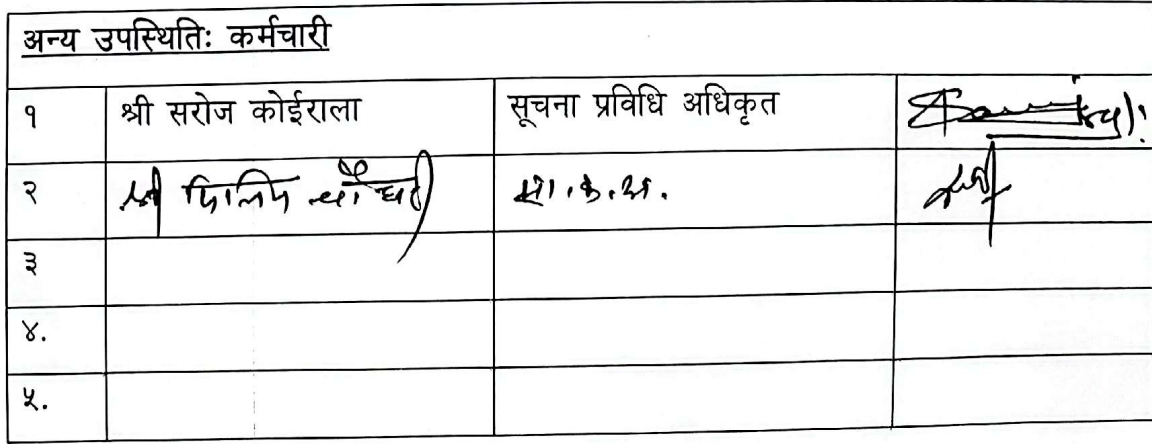 अन्य उपस्थितिः कर्मचारी
१ श्री सरोज कोईराला सूचना प्रविधि अधिकृत
२ श्री फिलिप चौधरी सा.क.अ.
३
४.
५.